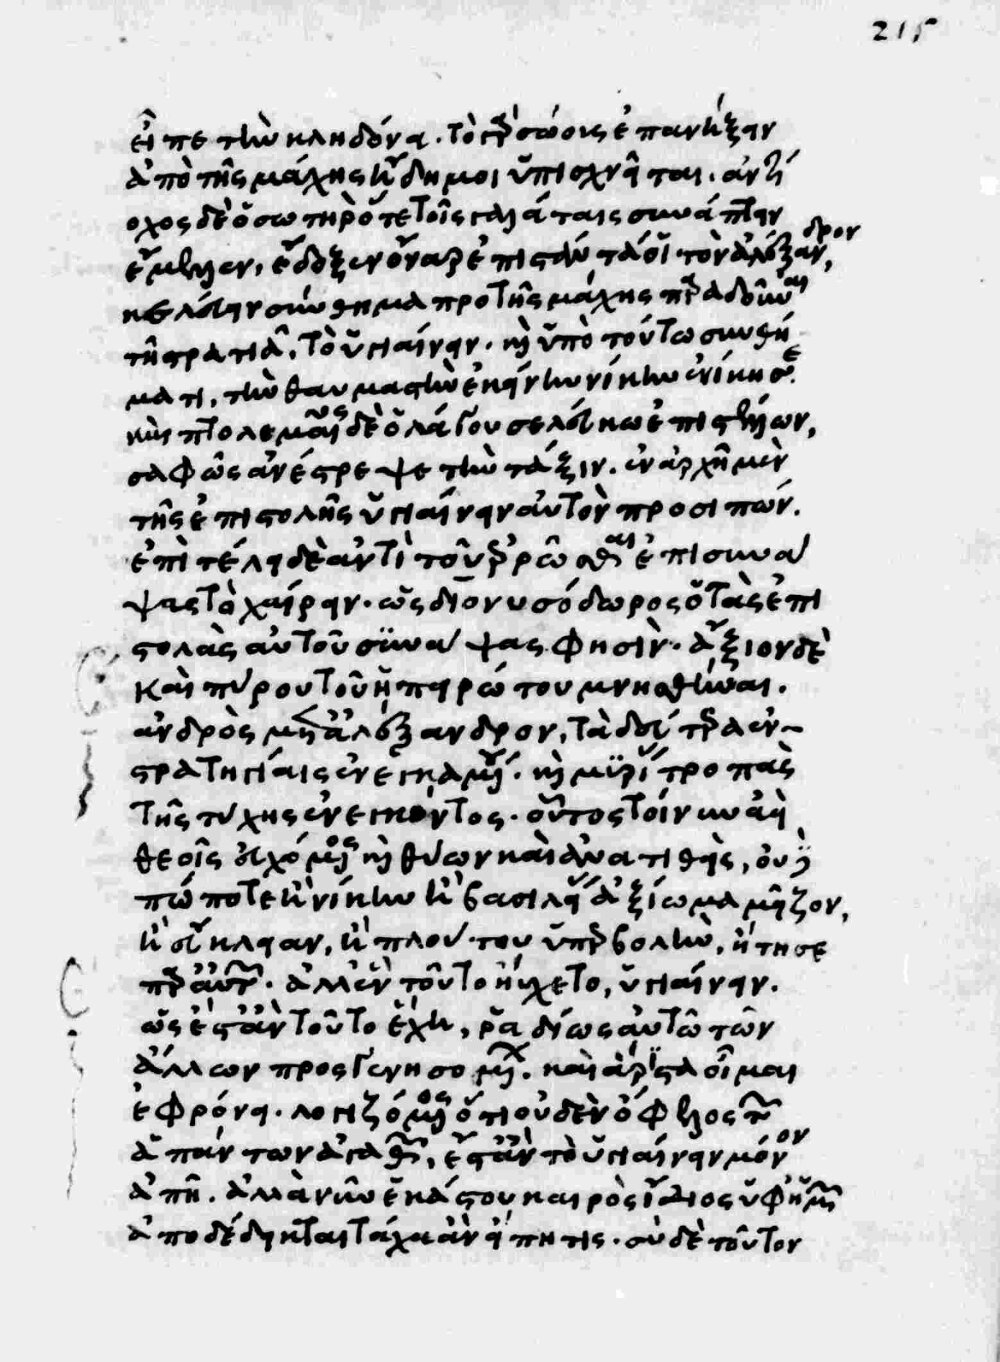 εἶπε τὴν κληδόνα. τὸ γὰρ σώους ἐπανήξειν
ἀπὸ τῆς μάχης ἤδη μοι ὑπισχνεῖται. ἀντί
οχος δὲ ὁ σωτὴρ ὅτε τοῖς γαλάταις συνάπτειν
ἔμελλεν, ἔδοξεν ὄναρ ἐπιστάντα οἱ τὸν ἀλέξανδρον,
κελεύειν σύνθημα πρὸ τῆς μάχης παραδοῦναι
τῇ στρατιᾷ, τὸ ὑγιαίνειν. καὶ ὑπὸ τούτῳ συνθή
ματι, τὴν θαυμαστὴν ἐκείνην νίκην ἐνίκησε.
καὶ πτολεμαῖος δὲ ὁ λάγου σελεύκω ἐπιστέλλων,
σαφῶς ἀνέστρεψε τὴν τάξιν. ἐν ἀρχῇ μὲν
τῆς ἐπιστολῆς ὑγιαίνειν αὐτὸν προσειπών.
ἐπὶ τέλει δὲ ἀντὶ τοῦ ἐρρῶσθαι ἐπισυνά
ψας τὸ χαίρειν. ὡς διονυσόδωρος ὁ τὰς ἐπι
στολὰς αὐτοῦ συνάψας φησίν. ἄξιον δὲ
καὶ πύρου τοῦ ἠπειρώτου μνησθῆναι.
ἀνδρὸς μετὰ ἀλέξανδρον, τὰ δεύτερα ἐν
στρατηγίαις ἐνεγκαμένου. καὶ μυρίας τροπὰς
τῆς τύχης ἐνεγκόντος. οὗτος τοίνυν ἀεὶ
θεοῖς εὐχόμενος καὶ θύων καὶ ἀνατιθεὶς, οὐδε
πώποτε ἢ νίκην ἢ βασιλείας ἀξίωμα μεῖζον,
ἢ εὔκλειαν, ἢ πλούτου ὑπερβολὴν, ᾔτησε
παρ' αὐτῶν. ἀλλ' ἓν τοῦτο ηὔχετο, ὑγιαίνειν.
ὡς ἔστ' ἂν τοῦτο ἔχῃ, ῥαδίως αὐτῶ τῶν
ἄλλων προσγενησομένων. καὶ ἄριστα οἶμαι
ἐφρόνει. λογιζόμενος ὅτι οὐδὲν ὄφελος τῶν
ἁπάντων ἀγαθῶν, ἔστ' ἂν τὸ ὑγιαίνειν μόνον
ἀπῇ. ἀλλὰ νῦν ἑκάστου καιρὸς ἴδιος ὑφ' ἡμῶν
ἀποδέδεικται τάχα ἂν εἴπῃ τις. σὺ δὲ τοῦτον